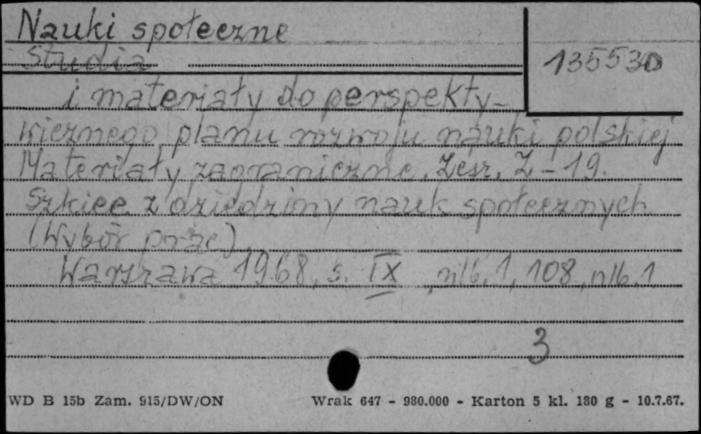 Nauki społeczne
Studia
135530
i materiały do perspekty-
wicznego planu rozwoju nauki polskiej
Materiały zagraniczne. Zesz. Z-19.
Szkice z dziedziny nauk społecznych
(Wybór prac)
Warszawa 1968, s. IX, nlb. 1, 108, nlb. 1
3
WD B 15b Zam. 915/DW/ON Wrak 647 - 980.000 - Karton 5 kl. 180 g - 10.7.67.